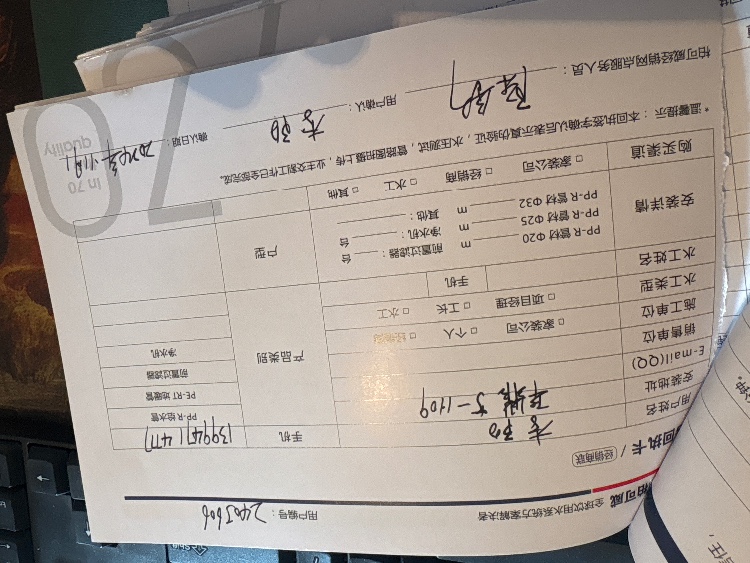 柏可威 全球饮用水系统方案解决者 用户编号：2405606
回执卡 / 经销商联
用户姓名 手机
安装地址 5-1109
E-mail(QQ)
销售单位 □ 家装公司 □ 个人 □ 经销商
施工单位 □ 项目经理 □ 工长 □ 水工
水工类型
水工姓名 手机
产品类别
PP-R 给水管
PE-RT 地暖管
前置过滤器
净水机
安装详情
PP-R 管材 Φ20 m 前置过滤器： 台
PP-R 管材 Φ25 m 净水机： 台
PP-R 管材 Φ32 m 其他：
户型
购买渠道 □ 家装公司 □ 经销商 □ 水工 □ 其他
*温馨提示：本回执签字确认后表示真伪验证，水压测试，管路图拍摄上传，业主交底工作已全部完成。
柏可威经销网点服务人员： 用户确认： 确认日期：
70
in 70
quality